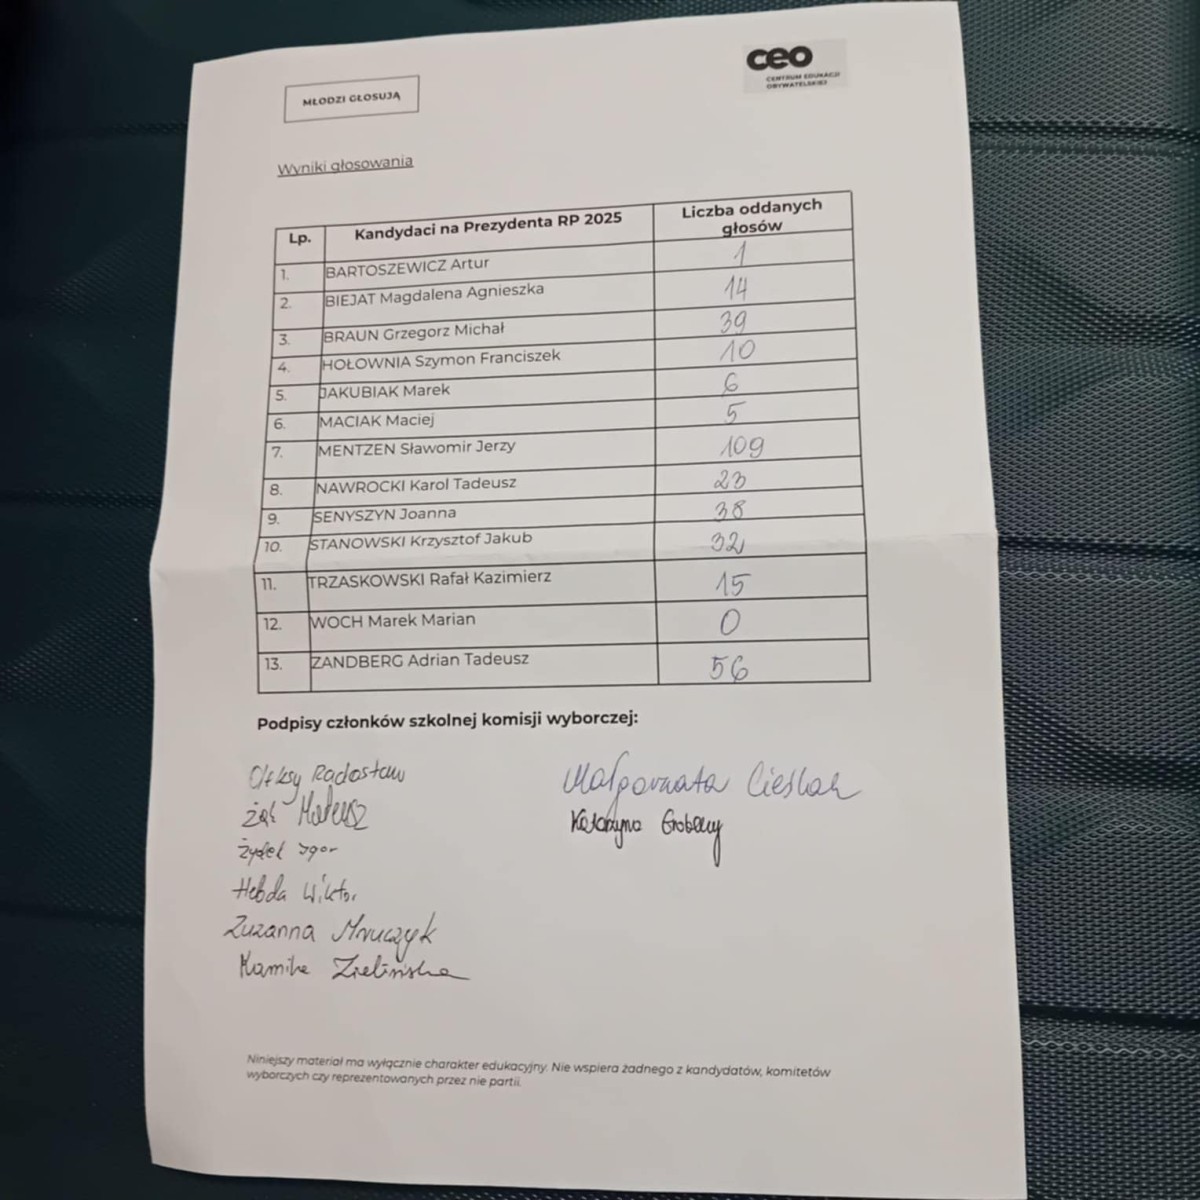 MŁODZI GŁOSUJĄ
ceo
CENTRUM EDUKACJI
OBYWATELSKIEJ
Wyniki głosowania
Lp. Kandydaci na Prezydenta RP 2025 Liczba oddanych głosów
1. BARTOSZEWICZ Artur 1
2. BIEJAT Magdalena Agnieszka 14
3. BRAUN Grzegorz Michał 39
4. HOŁOWNIA Szymon Franciszek 10
5. JAKUBIAK Marek 6
6. MACIAK Maciej 5
7. MENTZEN Sławomir Jerzy 109
8. NAWROCKI Karol Tadeusz 23
9. SENYSZYN Joanna 38
10. STANOWSKI Krzysztof Jakub 32
11. TRZASKOWSKI Rafał Kazimierz 15
12. WOCH Marek Marian 0
13. ZANDBERG Adrian Tadeusz 56
Podpisy członków szkolnej komisji wyborczej:
Oleksy Radosław
Małgorzata Cieślak
Mateusz
Katarzyna
Igor
Hebda Wiktor
Zuzanna Mruczyk
Kamila Zielińska
Niniejszy materiał ma wyłącznie charakter edukacyjny. Nie wspiera żadnego z kandydatów, komitetów
wyborczych czy reprezentowanych przez nie partii.